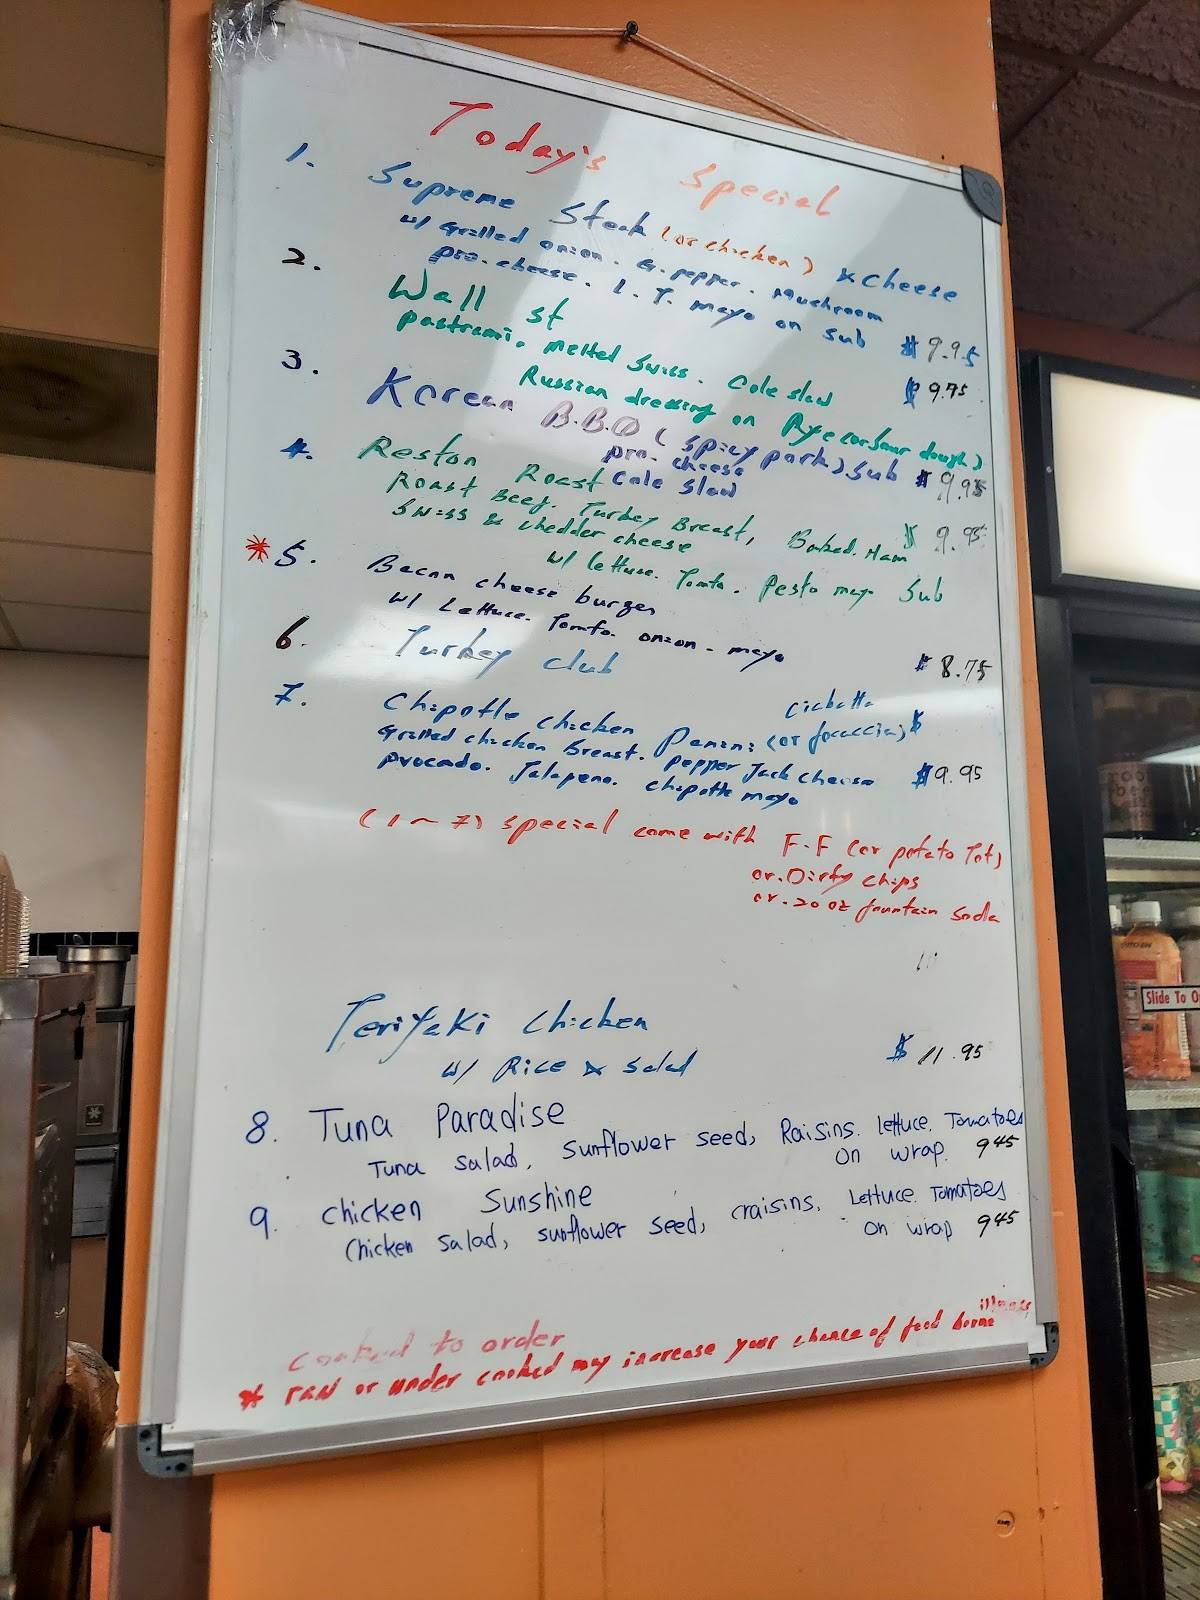 Today's Special
1. Supreme Steak (or chicken) & Cheese
w/ Grilled onion. G. pepper. Mushroom
pro. cheese. L. T. mayo on sub $ 9.95
2. Wall st
pastrami. melted swiss. Cole slaw $ 9.75
Russian dressing on Rye (or sour dough)
3. Korean B.B.Q (spicy pork) sub $ 9.95
pro. cheese
Cole slaw
4. Reston Roast
Roast Beef. Turkey Breast, Baked. Ham $ 9.95
Swiss & chedder cheese
w/ lettuce. Tomto. Pesto mayo Sub
* 5. Bacon cheese burger
w/ Lettuce. Tomto. onion. mayo $ 8.75
6. Turkey club
7. Chipotle chicken Panini (or focaccia) $
Ciabatta
Grilled chicken Breast. pepper Jack cheese $ 9.95
Avocado. Jalapeno. chipotle mayo
(1~7) special come with F.F (or potato Tot)
or. Dirty chips
or. 20 oz fountain Soda
Teriyaki Chicken
w/ Rice & Salad $ 11.95
8. Tuna Paradise
Tuna salad, sunflower seed, Raisins. lettuce. Tomatoes
on wrap. 945
9. chicken Sunshine
Chicken salad, sunflower seed, craisins. Lettuce. Tomatoes
on wrap 945
cooked to order
* raw or under cooked may increase your chance of food borne illness
Slide To O